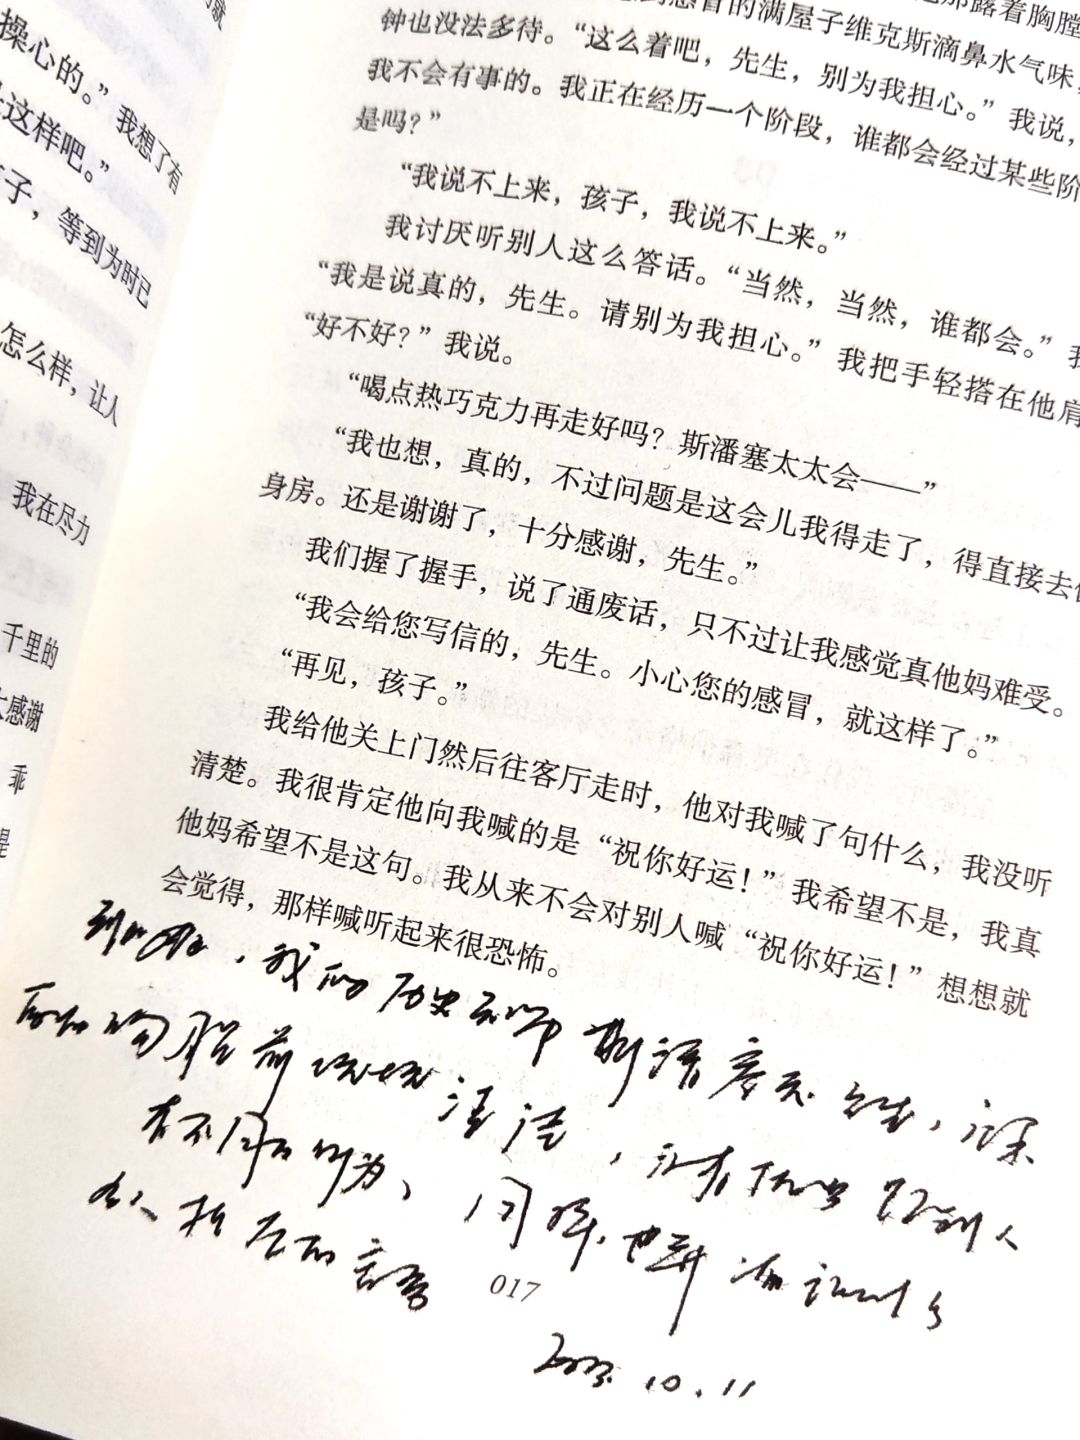 的就
操心的。”我想了有
是这样吧。”
子，等到为时已
怎么样，让人
我在尽力
千里的
大感谢
乖
是
感冒的满屋子维克斯滴鼻水气味，
那露着胸膛
钟也没法多待。“这么着吧，先生，别为我担心。”我说，
我不会有事的。我正在经历一个阶段，谁都会经过某些阶
是吗？”
“我说不上来，孩子，我说不上来。”
我讨厌听别人这么答话。“当然，当然，谁都会。”我
“我是说真的，先生。请别为我担心。”我把手轻搭在他肩
“好不好？”我说。
“喝点热巧克力再走好吗？斯潘塞太太会——”
“我也想，真的，不过问题是这会儿我得走了，得直接去体
身房。还是谢谢了，十分感谢，先生。”
我们握了握手，说了通废话，只不过让我感觉真他妈难受。
“我会给您写信的，先生。小心您的感冒，就这样了。”
“再见，孩子。”
我给他关上门然后往客厅走时，他对我喊了句什么，我没听
清楚。我很肯定他向我喊的是“祝你好运！”我希望不是，我真
他妈希望不是这句。我从来不会对别人喊“祝你好运！”想想就
会觉得，那样喊听起来很恐怖。
，我的历史老师斯潘塞先生，
胸膛前
有不同的行为、同样也
017
10.11